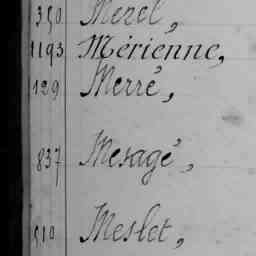 350 Mezel,
1193 Mérienne,
129 Merré,
837 Mesagé,
510 Meslet,